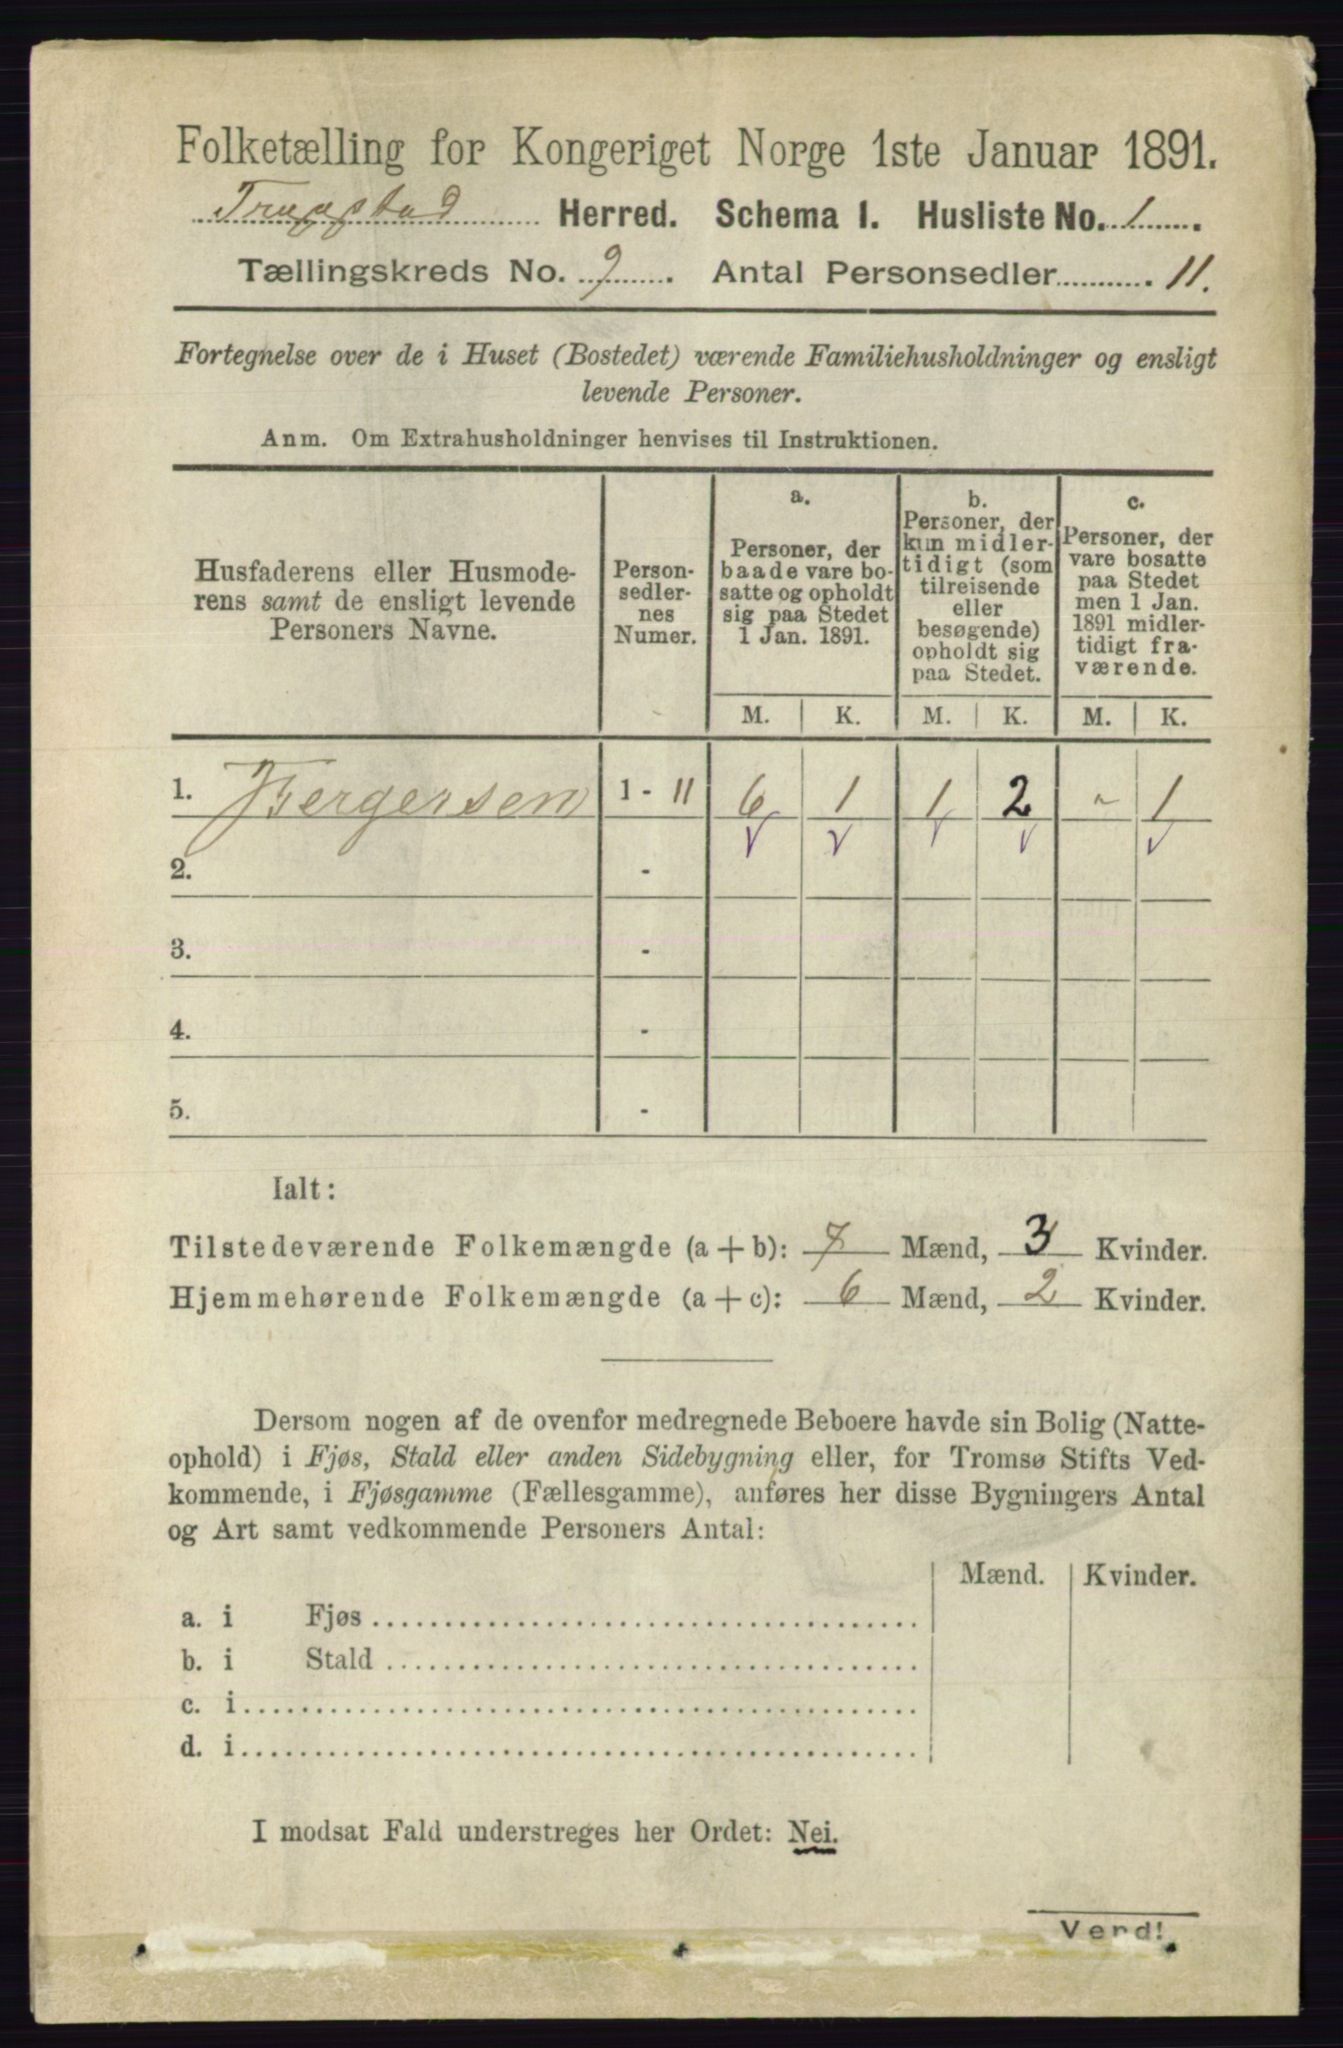 Folketælling for Kongeriget Norge 1ste Januar 1891.
Trøgstad Herred. Schema 1. Husliste No. 1.
Tællingskreds No. 9. Antal Personsedler 11.
Fortegnelse over de i Huset (Bostedet) værende Familiehusholdninger og ensligt
levende Personer.
Anm. Om Extrahusholdninger henvises til Instruktionen.
Husfaderens eller Husmode-
rens samt de ensligt levende
Personers Navne.
Person-
sedler-
nes
Numer.
a.
Personer, der
baade vare bo-
satte og opholdt
sig paa Stedet
1 Jan. 1891.
b.
Personer, der
kun midler-
tidigt (som
tilreisende
eller
besøgende)
opholdt sig
paa Stedet.
c.
Personer, der
vare bosatte
paa Stedet
men 1 Jan.
1891 midler-
tidigt fra-
værende.
M. K. M. K. M. K.
1. Bergersen 1 - 11 6 1 1 2 - 1
2. -
3. -
4. -
5. -
Ialt:
Tilstedeværende Folkemængde (a+b): 7 Mænd, 3 Kvinder.
Hjemmehørende Folkemængde (a+c): 6 Mænd, 2 Kvinder.
Dersom nogen af de ovenfor medregnede Beboere havde sin Bolig (Natte-
ophold) i Fjøs, Stald eller anden Sidebygning eller, for Tromsø Stifts Ved-
kommende, i Fjøsgamme (Fællesgamme), anføres her disse Bygningers Antal
og Art samt vedkommende Personers Antal:
Mænd. Kvinder.
a. i Fjøs
b. i Stald
c. i
d. i
I modsat Fald understreges her Ordet: Nei.
Vend!